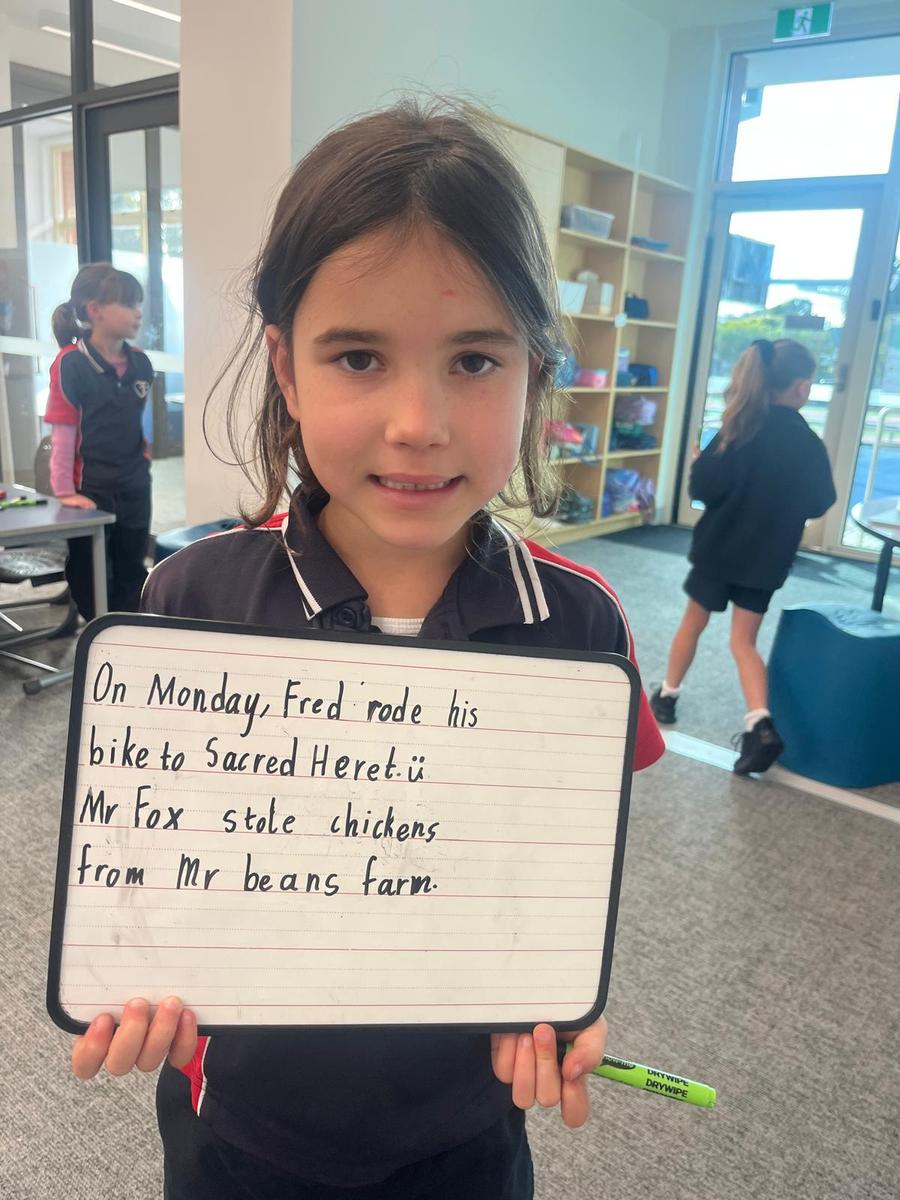 On Monday, Fred rode his
bike to Sacred Heret. ü
Mr Fox stole chickens
from Mr beans farm.
DRYWIPE
DRYWIPE